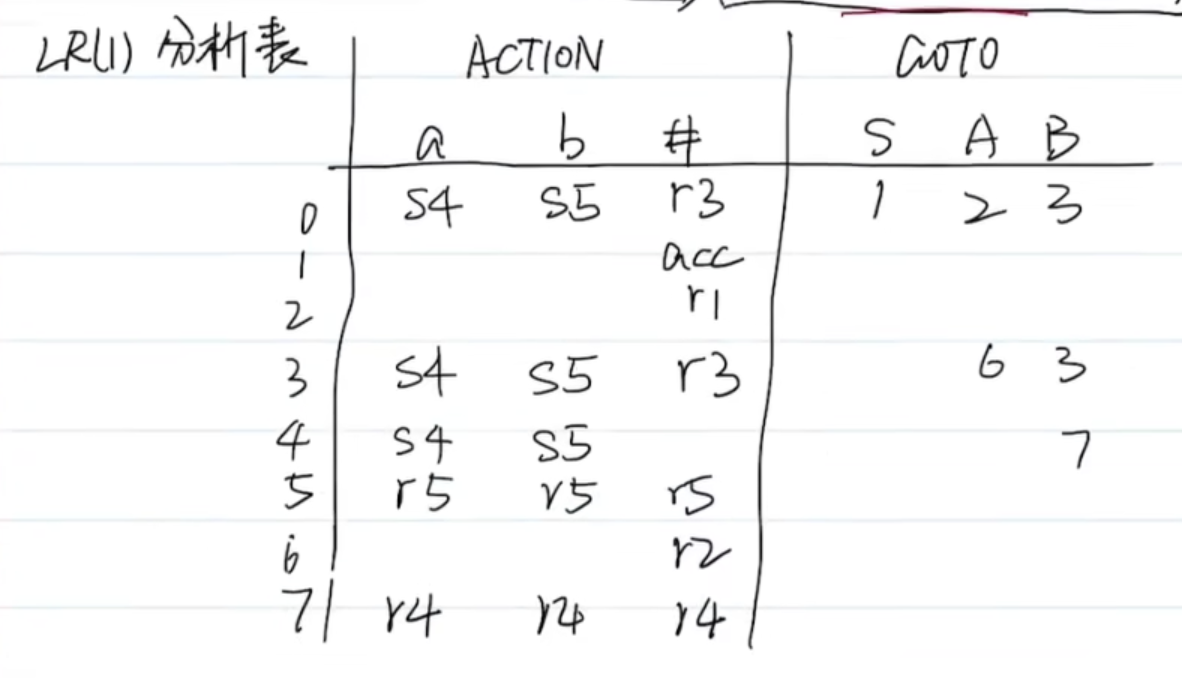 LR(1) 分析表 ACTION GOTO
a b # S A B
0 s4 s5 r3 1 2 3
1 acc
2 r1
3 s4 s5 r3 6 3
4 s4 s5 7
5 r5 r5 r5
6 r2
7 r4 r4 r4